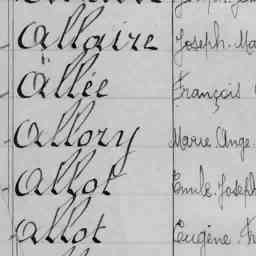 Allaire Joseph. Ma
Allée François
Allory Marie Ange
Allot Emile Joseph
Allot Eugène. Fr